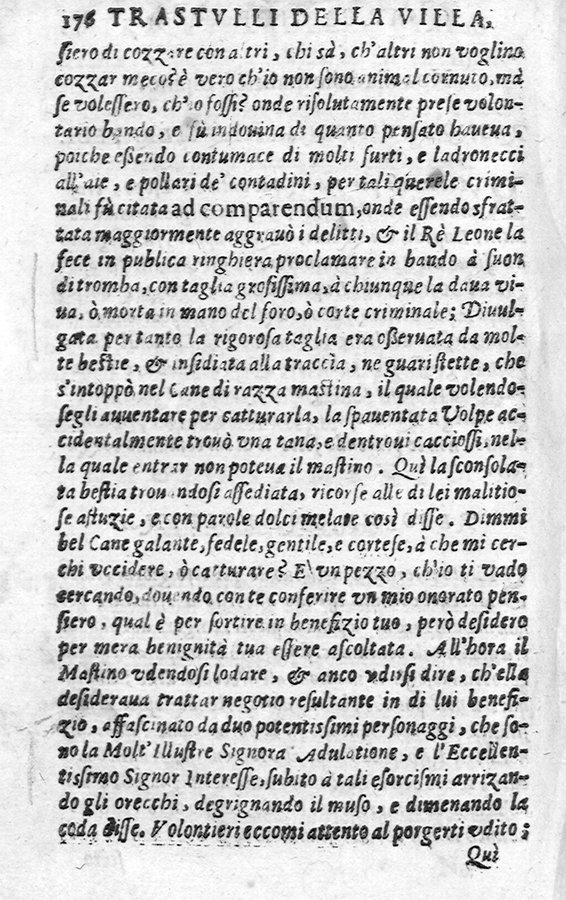 176 TRASTVLLI DELLA VILLA.
siero di cozzare con altri, chi sà, ch'altri non voglino
cozzar meco? è vero ch'io non sono animal cornuto, mà
se volessero, ch'io fossi? onde risolutamente prese volon-
tario bando, e fù indouina di quanto pensato haueua,
poiche essendo contumace di molti furti, e ladronecci
all'aie, e pollari de' contadini, per tali querele crimi-
nali fù citata ad comparendum, onde essendo sfrat-
tata maggiormente aggrauò i delitti, & il Rè Leone la
fece in publica ringhiera proclamare in bando à suon
di tromba, con taglia grossissima, à chiunque la daua vi-
ua, ò morta in mano del foro, ò corte criminale; Diuul-
gata per tanto la rigorosa taglia era osseruata da mol-
te bestie, & insidiata alla traccia, ne guari stette, che
s'intoppò nel Cane di razza mastina, il quale volendo-
segli auuentare per catturarla, la spauentata Volpe ac-
cidentalmente trouò vna tana, e dentroui cacciossi, nel-
la quale entrar non poteua il mastino. Quì la sconsola-
ta bestia trouandosi assediata, ricorse alle di lei malitio-
se astuzie, e con parole dolci melate così disse. Dimmi
bel Cane galante, fedele, gentile, e cortese, à che mi cer-
chi vccidere, ò catturare? E\ vn pezzo, ch'io ti vado
cercando, douendo con te conferire vn mio onorato pen-
siero, qual è per sortire in benefizio tuo, però desidero
per mera benignità tua essere ascoltata. All'hora il
Mastino vdendosi lodare, & anco vdirsi dire, ch'ella
desideraua trattar negotio resultante in di lui benefi-
zio, affascinato da duo potentissimi personaggi, che so-
no la Molt' Illustre Signora Adulatione, e l'Eccellen-
tissimo Signor Interesse, subito à tali esorcismi arrizan-
do gli orecchi, degrignando il muso, e dimenando la
coda disse. Volontieri eccomi attento al porgerti vdito;
Quì